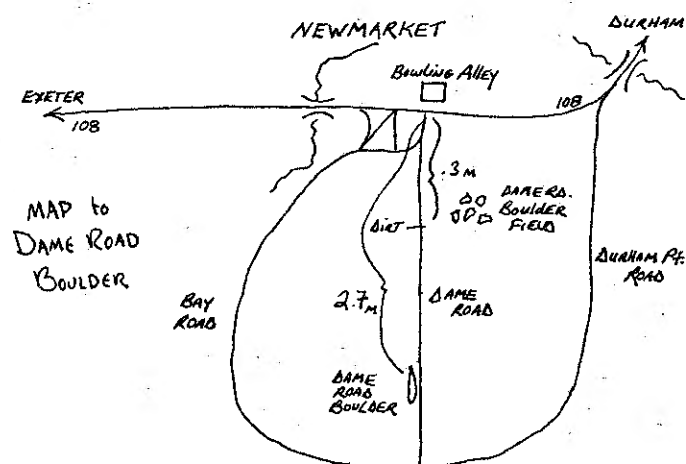 DURHAM
NEWMARKET
Bowling Alley
EXETER
108
108
.3 M
DAME RD.
BOULDER
FIELD
MAP to
DAME ROAD
BOULDER
DIRT
DURHAM PT.
ROAD
BAY
ROAD
2.7 M
DAME
ROAD
DAME
ROAD
BOULDER